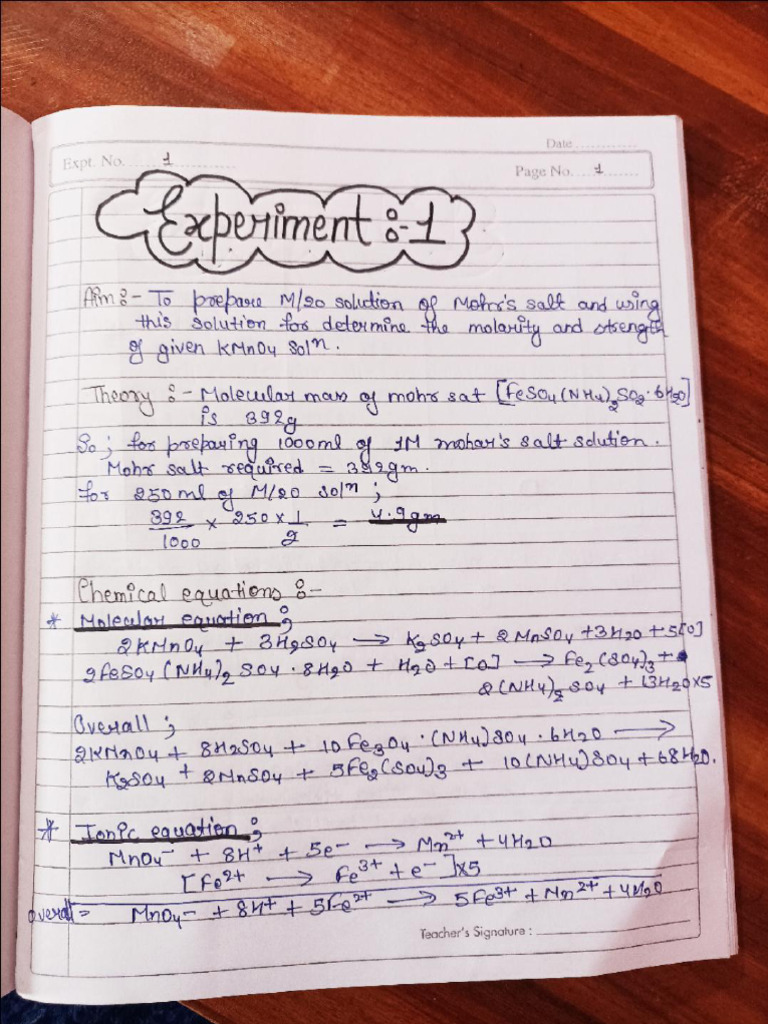 Date.............
Expt. No. ......1............
Page No. ....1........
Experiment :- 1
Aim :- To prepare M/20 solution of Mohr's salt and using
this solution for determine the molarity and strength
of given KMnO4 Solⁿ.
Theory :- Molecular mass of mohr sat [FeSO4(NH4)2SO2·6H2O]
is 392g
So ; for preparing 1000ml of 1M mohar's salt solution.
Mohr salt required = 392gm.
for 250ml of M/20 solⁿ ;
392/1000 × 250 × 1/2 = 4.9gm
Chemical equations :-
* Molecular equation ;
2KMnO4 + 3H2SO4 → K2SO4 + 2MnSO4 + 3H2O + 5[O]
2FeSO4(NH4)2SO4·8H2O + H2O + [O] → Fe2(SO4)3 +
2(NH4)2SO4 + 13H2O×5
Overall ;
2KMnO4 + 8H2SO4 + 10Fe3O4·(NH4)SO4·6H2O →
K2SO4 + 2MnSO4 + 5Fe2(SO4)3 + 10(NH4)SO4 + 68H2O.
* Ionic equation ;
MnO4⁻ + 8H⁺ + 5e⁻ → Mn²⁺ + 4H2O
[Fe²⁺ → Fe³⁺ + e⁻]×5
Overall = MnO4⁻ + 8H⁺ + 5Fe²⁺ → 5Fe³⁺ + Mn²⁺ + 4H2O
Teacher's Signature :